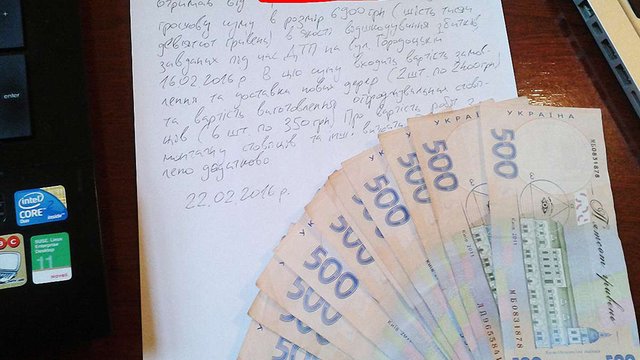 отримав від
грошову суму в розмір 6900 грн (шість тисяч
девятсот гривень) в якості відшкодування збитків
завданих під час ДТП на вул. Городоцькій
16.02.2016 р. В цю суму входить вартість замов-
лення та доставка нових дерев (2 шт. по 2400 грн)
та вартість виготовлення огороджувальних стовп-
ців (6 шт по 350 грн) Про вартість робіт з
монтажу стовпців та інші
лено додатково
22.02.2016 р.
enter
intel
CORE 2
Duo inside
SUSE Linux
Enterprise
Desktop
11
NOVELL
УКРАЇНА
УКРАЇНА
500
500
500
500
500
500
500
МБ0831878
П'ятсот гривень
Київ 2011
МБ0831878